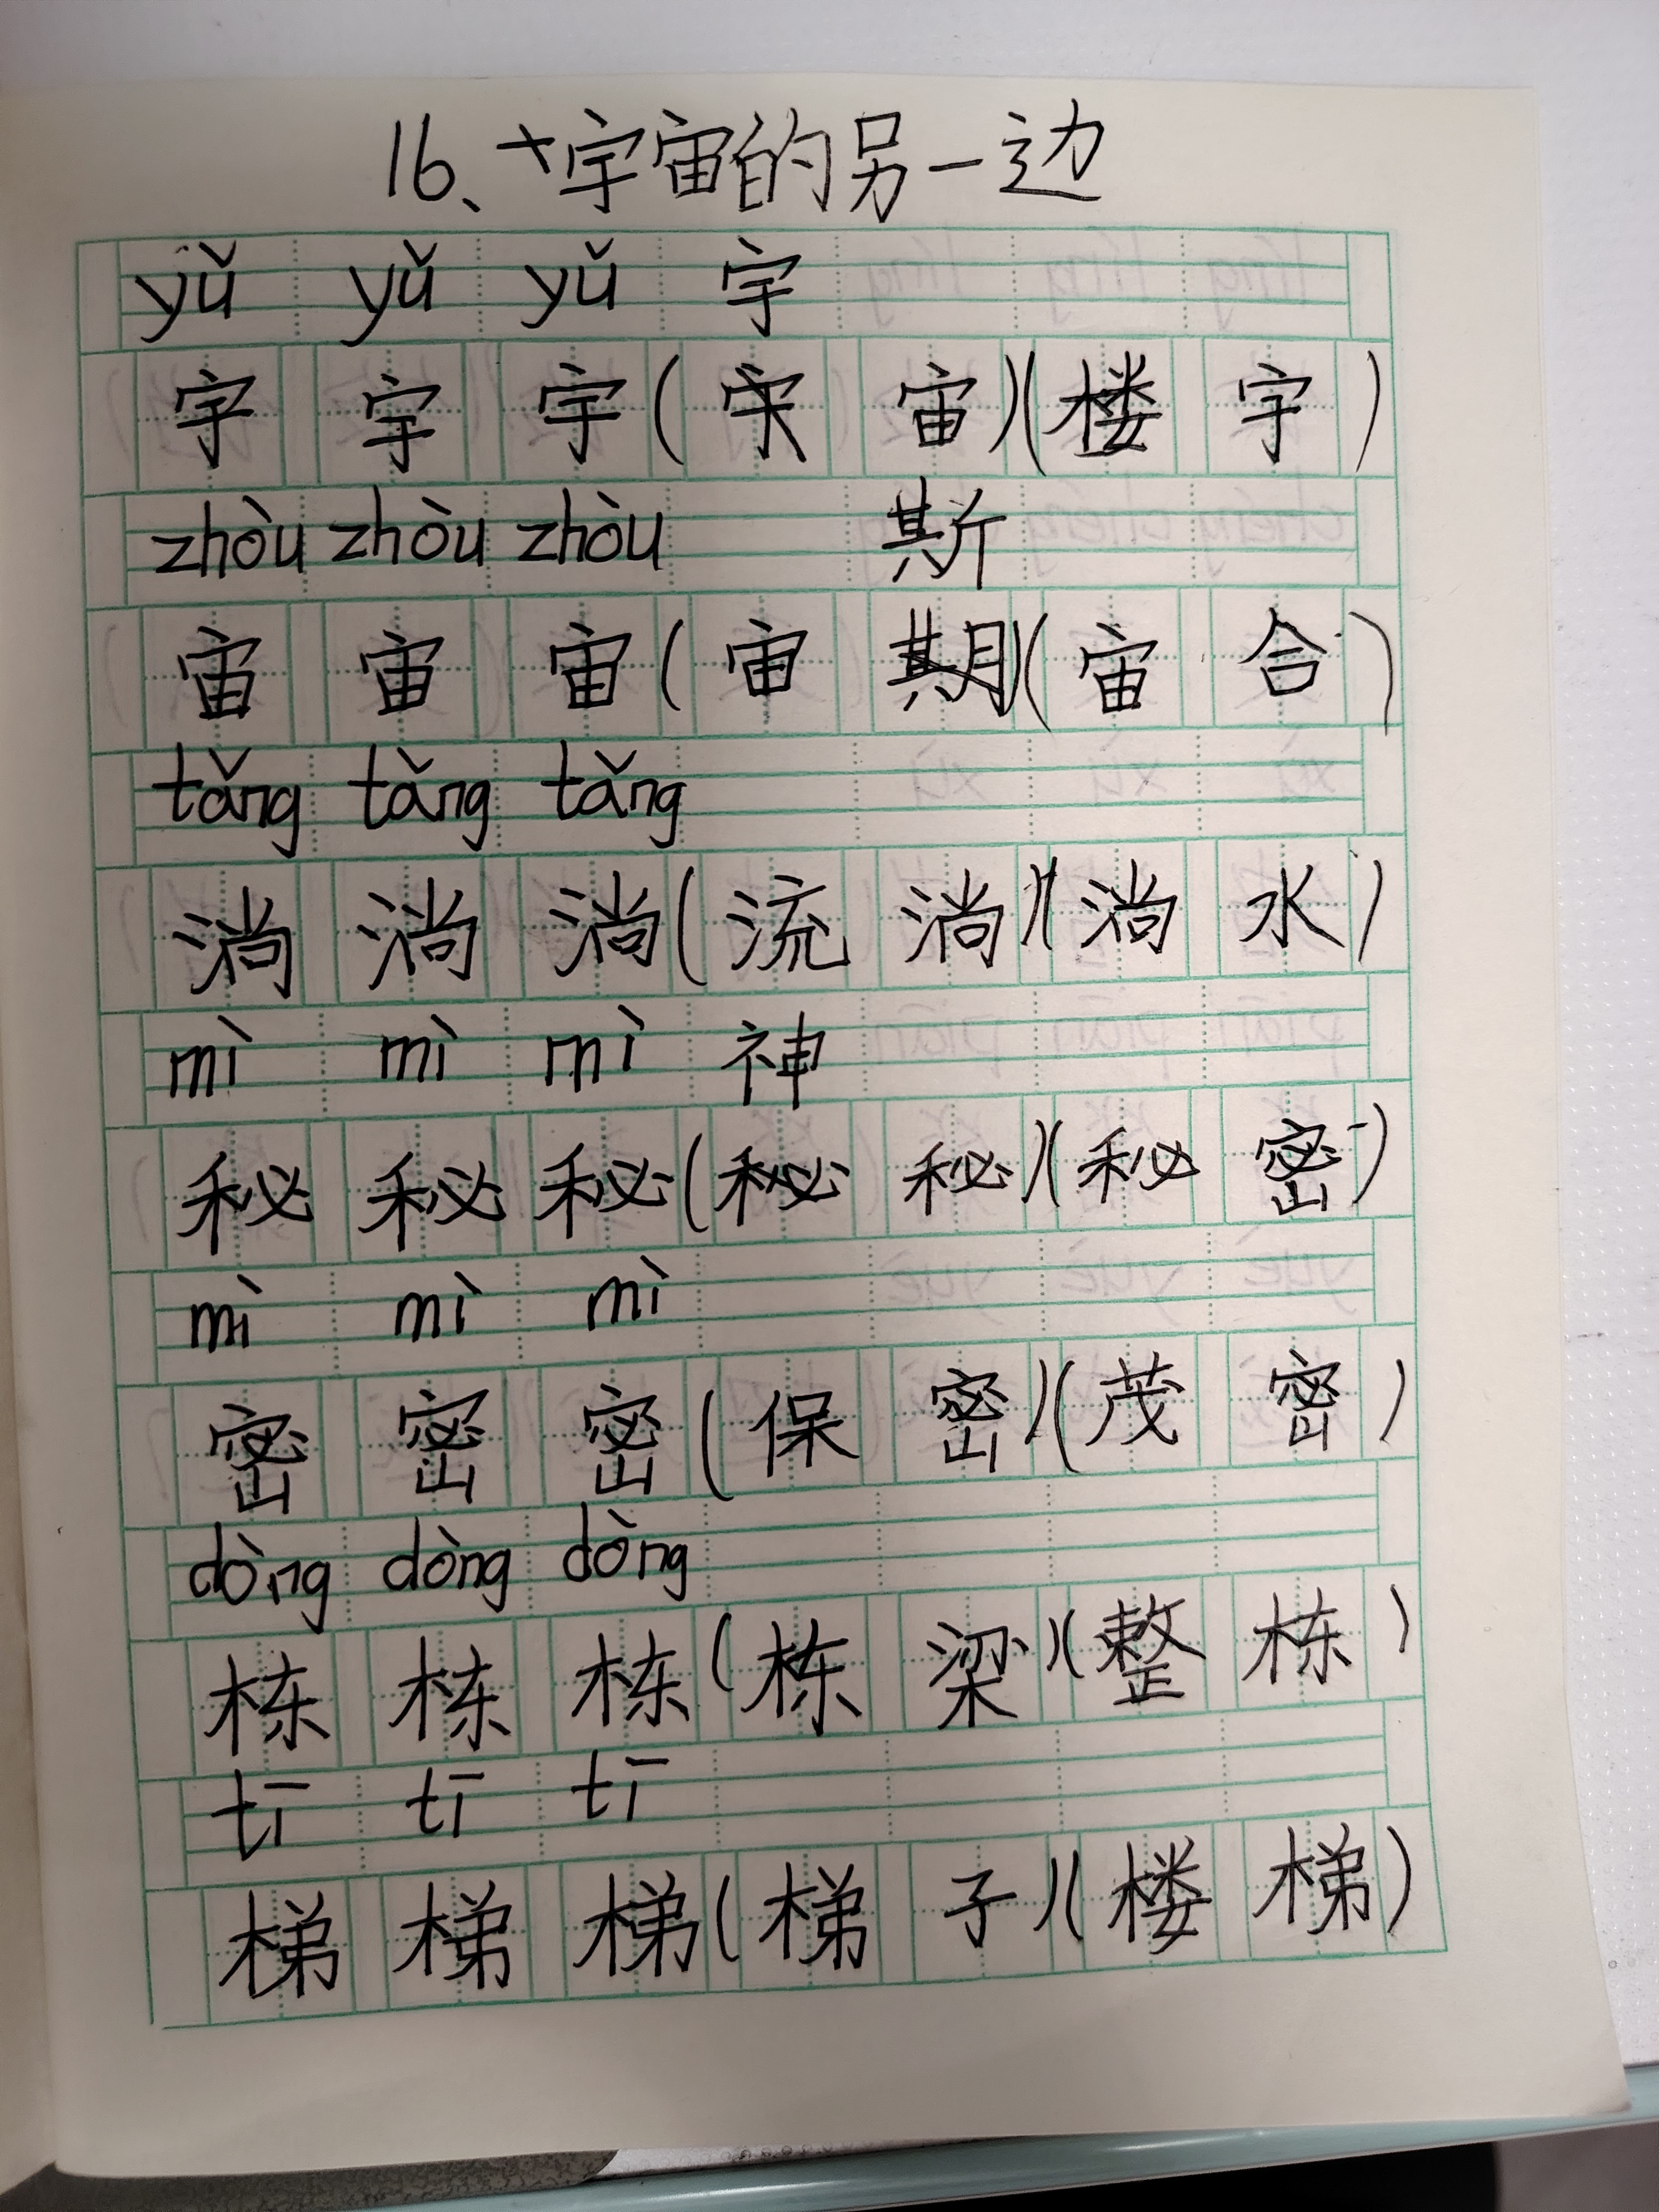 16、+宇宙的另一边
yǔ yǔ yǔ 宇
宇 宇 宇(宙)(楼宇)
zhòu zhòu zhòu 斯
宙 宙 宙(宙期)(宙合)
tǎng tǎng tǎng
淌 淌 淌(流淌)(淌水)
mì mì mì 神
秘 秘 秘(秘秘)(秘密)
mì mì mì
密 密 密(保密)(茂密)
dòng dòng dòng
栋 栋 栋(栋梁)(整栋)
tī tī tī
梯 梯 梯(梯子)(楼梯)